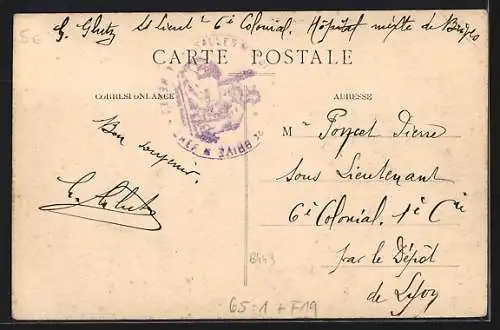 G. Glutz St Lieut t 6e Colonial. Hôpital mixte de
CARTE POSTALE
CORRESPONDANCE
ADRESSE
Bon souvenir.
G. Glutz
BRIVE
M Poncet Pierre
Sous Lieutenant
6e Colonial. 1e Cie
par le Dépôt
de Lyon
6443
65-1 + F19